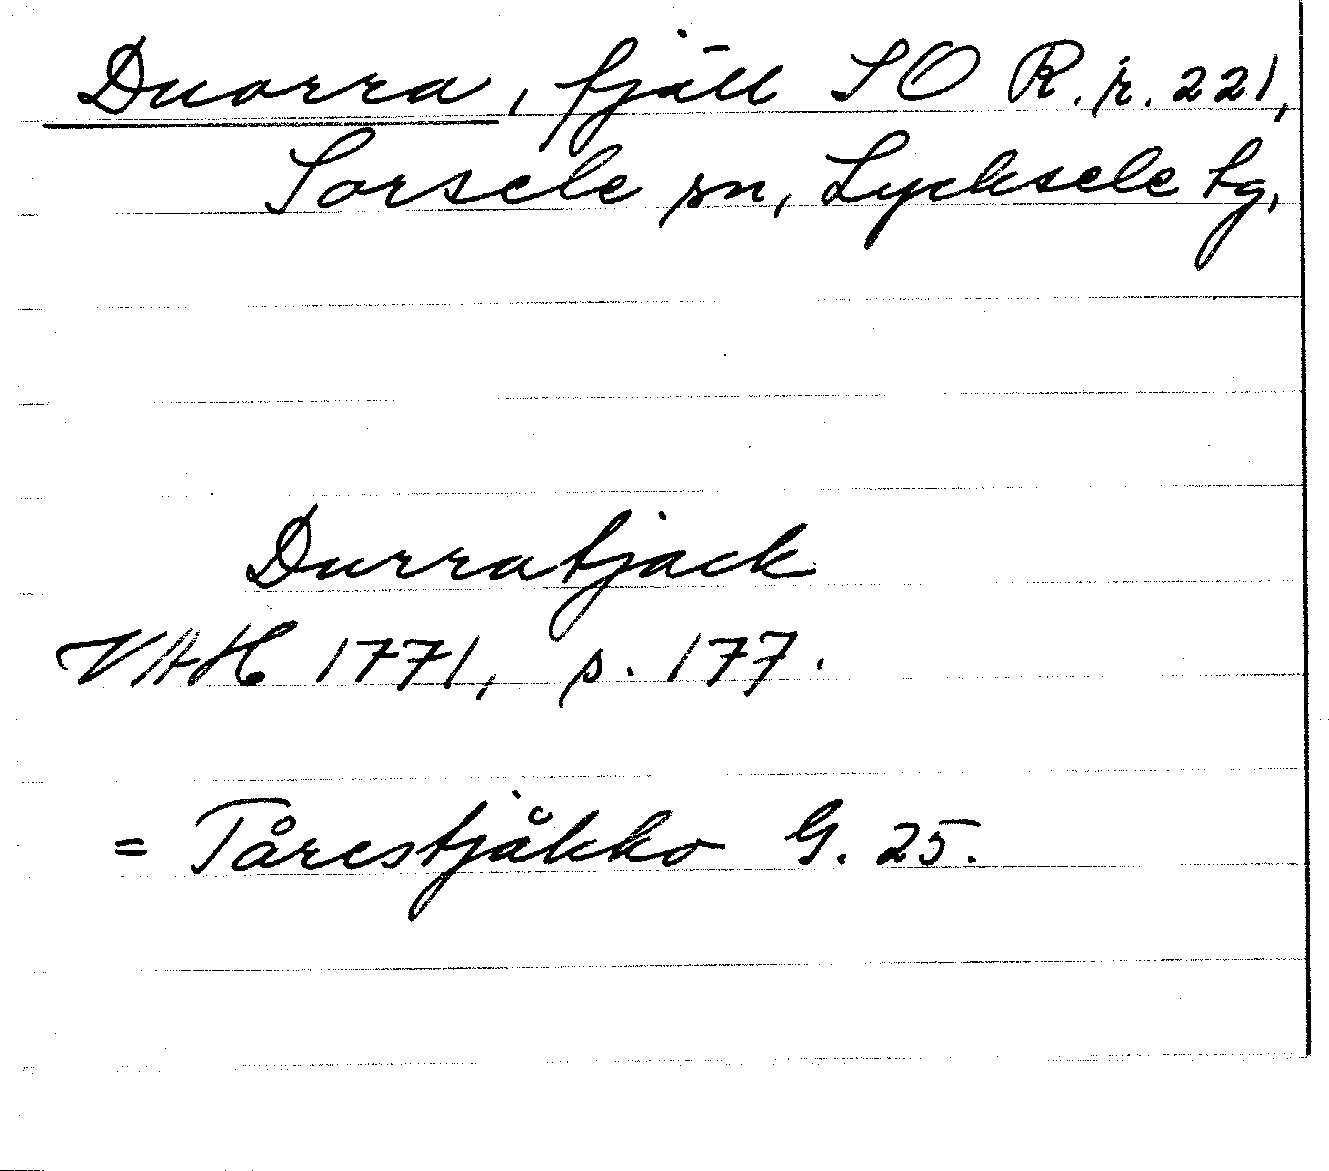 Duorra, fjäll SO R.r. 221,
Sorsele sn, Lycksele lg.
Durratjack
VAH 1771, p. 177.
= Tårestjåkko G. 25.